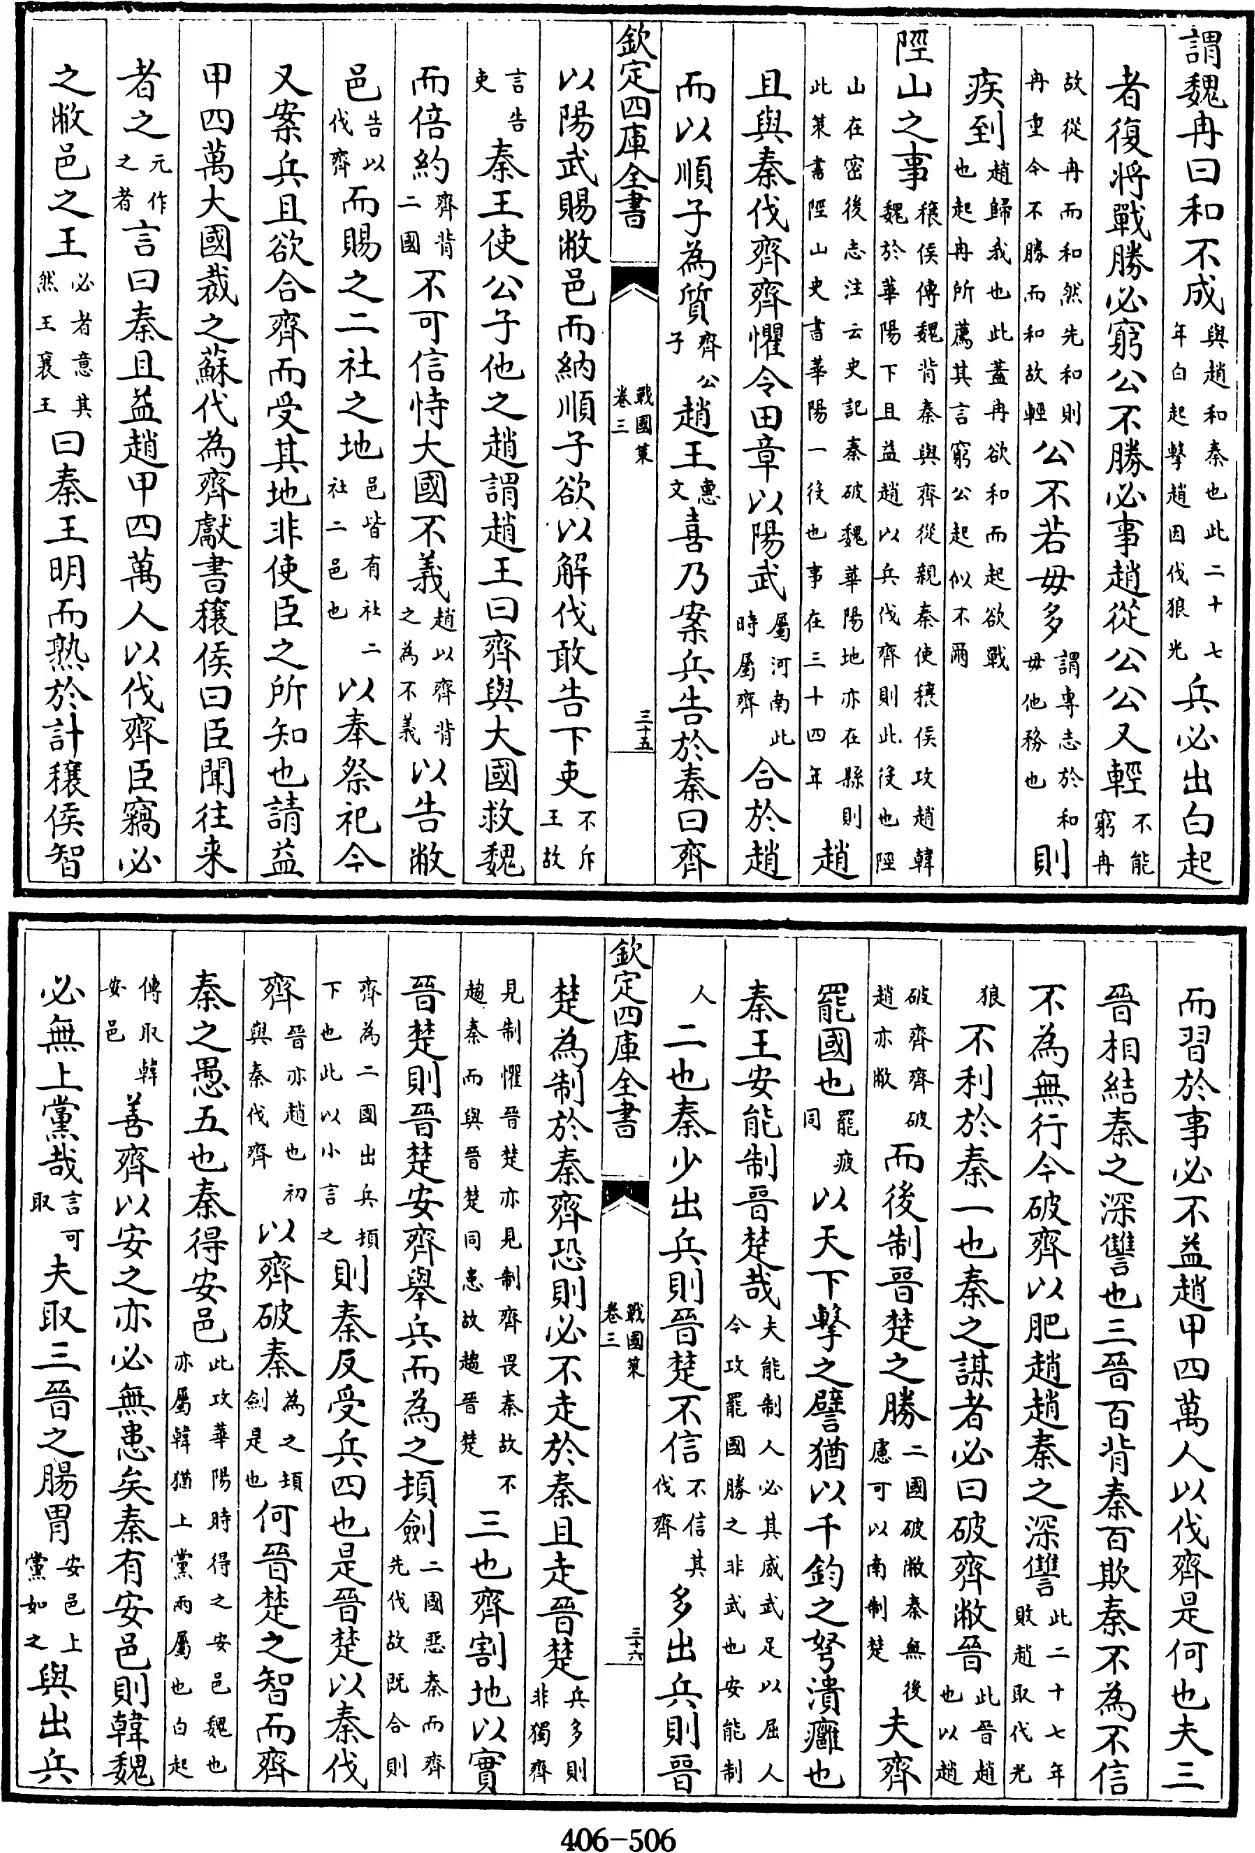 謂魏冉曰和不成與趙和秦也此二十七年白起擊趙因伐狼光兵必出白起
者復將戰勝必窮公不勝必事趙從公公又輕不能窮冉
故從冉而和然先和則冉重今不勝而和故輕公不若毋多謂專志於和毋他務也則
疾到趙歸我也此蓋冉欲和而起欲戰也起冉所薦其言窮公起似不爾
陘山之事穰侯傳魏背秦與齊從親秦使穰侯攻趙韓魏於華陽下且益趙以兵伐齊則此後也陘
山在密後志注云史記秦破魏華陽地亦在縣則此策書陘山史書華陽一役也事在三十四年趙
且與秦伐齊齊懼令田章以陽武屬河南此時屬齊合於趙
而以順子為質齊公子趙王惠文喜乃案兵告於秦曰齊
欽定四庫全書
戰國策
卷三
三十五
以陽武賜敝邑而納順子欲以解伐敢告下吏不斥王故
言告吏秦王使公子他之趙謂趙王曰齊與大國救魏
而倍約齊背二國不可信恃大國不義趙以齊背之為不義以告敝
邑告以伐齊而賜之二社之地邑皆有社二社二邑也以奉祭祀今
又案兵且欲合齊而受其地非使臣之所知也請益
甲四萬大國裁之蘇代為齊獻書穰侯曰臣聞往来
者之元作之者言曰秦且益趙甲四萬人以伐齊臣竊必
之敝邑之王必者意其然王襄王曰秦王明而熟於計穰侯智
而習於事必不益趙甲四萬人以伐齊是何也夫三
晉相結秦之深讐也三晉百背秦百欺秦不為不信
不為無行今破齊以肥趙趙秦之深讐此二十七年敗趙取代光
狼不利於秦一也秦之謀者必曰破齊敝晉此晉趙也以趙
破齊齊破趙亦敝而後制晉楚之勝二國破敝秦無後慮可以南制楚夫齊
罷國也罷疲同以天下擊之譬猶以千鈞之弩潰癰也
秦王安能制晉楚哉夫能制人必其威武足以屈人今攻罷國勝之非武也安能制
人二也秦少出兵則晉楚不信不信其伐齊多出兵則晉
欽定四庫全書
戰國策
卷三
三十六
楚為制於秦齊恐則必不走於秦且走晉楚兵多則非獨齊
見制懼晉楚亦見制齊畏秦故不趨秦而與晉楚同患故趨晉楚三也齊割地以實
晉楚則晉楚安齊舉兵而為之頓劍二國惡秦而齊先伐故既合則
齊為二國出兵頓下也此以小言之則秦反受兵四也是晉楚以秦伐
齊晉亦趙也初與秦伐齊以齊破秦為之頓劍是也何晉楚之智而齊
秦之愚五也秦得安邑此攻華陽時得之安邑魏也亦屬韓猶上黨兩屬也白起
傳取韓安邑善齊以安之亦必無患矣秦有安邑則韓魏
必無上黨哉言可取夫取三晉之腸胃安邑上黨如之與出兵
406-506